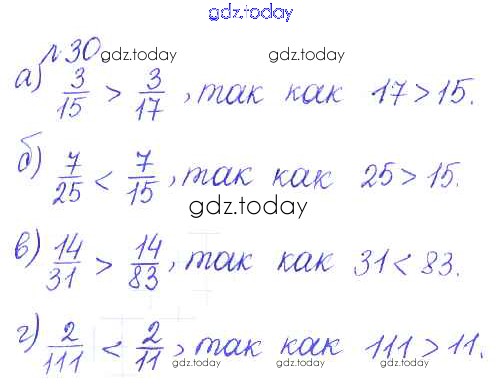 gdz.today
№30 gdz.today gdz.today
а) 3/15 > 3/17, так как 17 > 15.
б) 7/25 < 7/15, так как 25 > 15.
gdz.today
в) 14/31 > 14/83, так как 31 < 83.
г) 2/111 < 2/11, так как 111 > 11.
gdz.today gdz.today